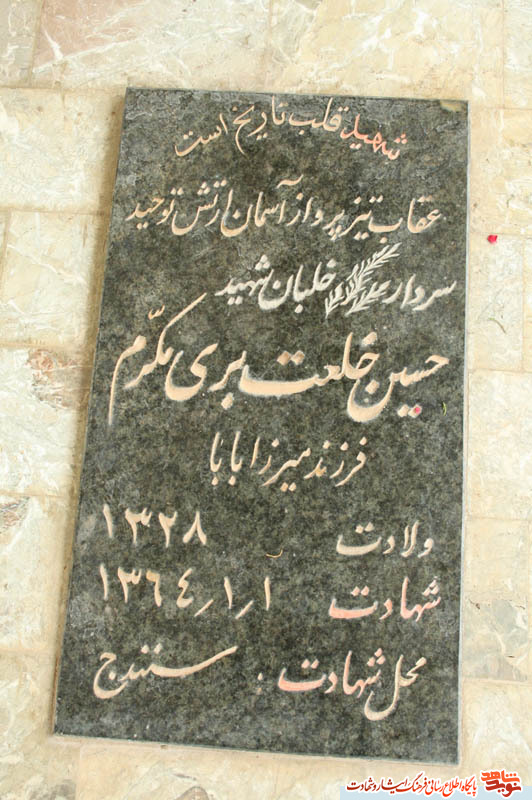 شهید قلب تاریخ است
عقاب تیز پرواز آسمان ارتش توحید
سردار خلبان شهید
حسین خلعت بری مکرّم
فرزند میرزا بابا
ولادت ۱۳۲۸
شهادت ۱۳۶۴/۱/۱
محل شهادت : سنندج
نوید شاهد
پایگاه اطلاع رسانی فرهنگ ایثار و شهادت